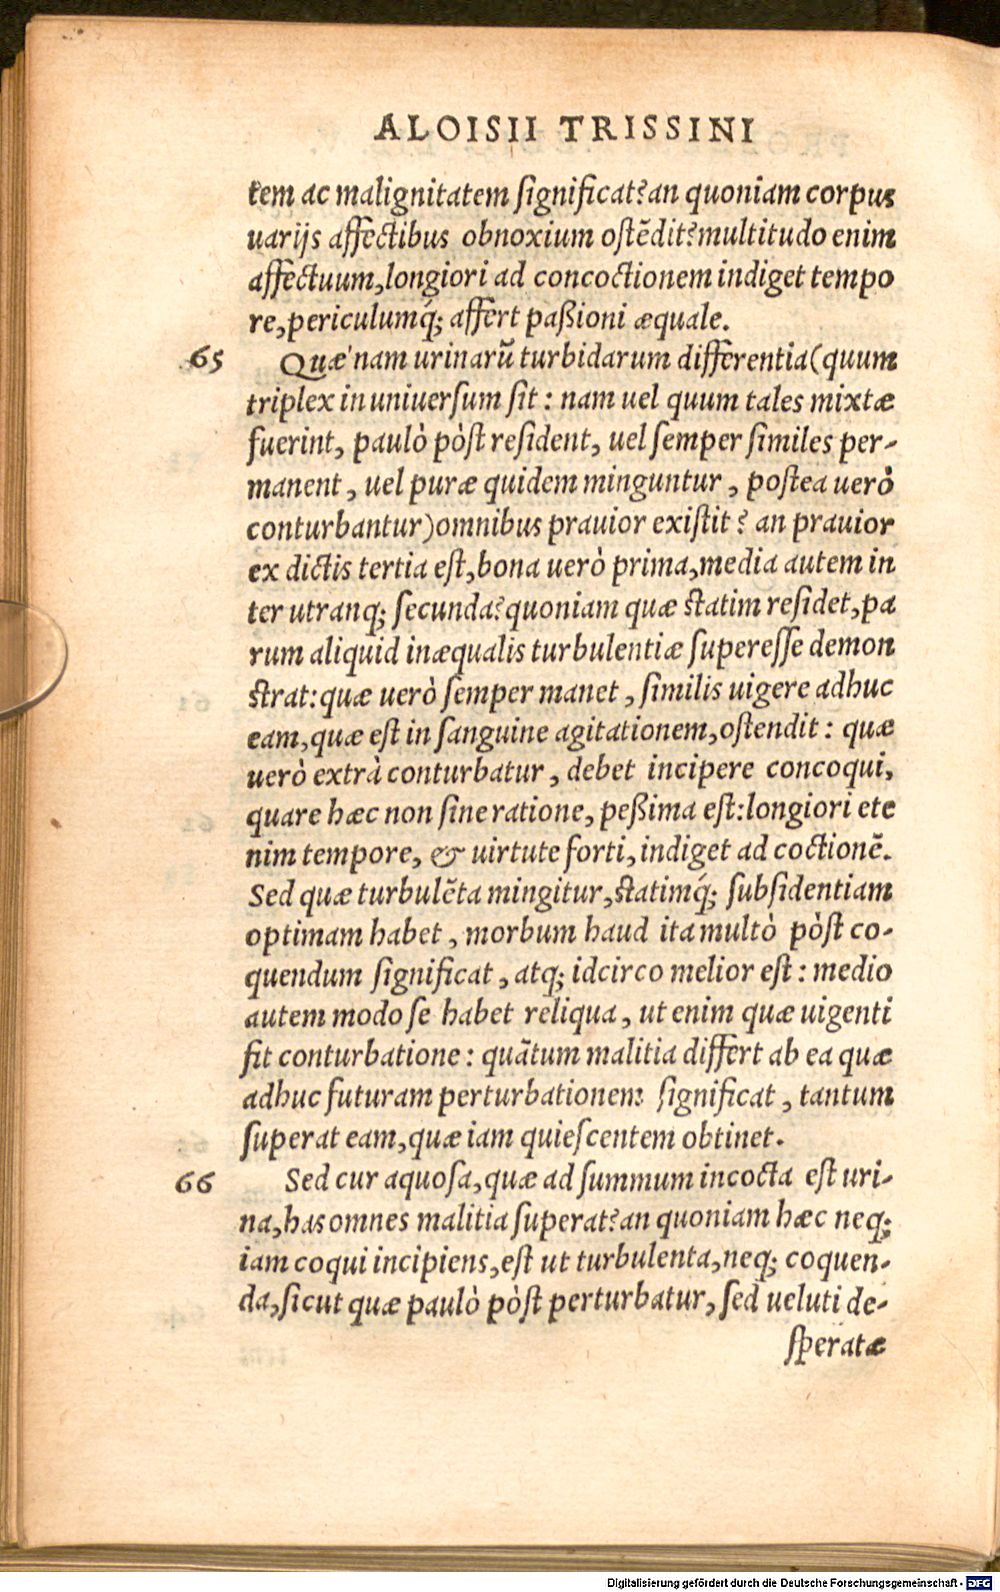 ALOISII TRISSINI
tem ac malignitatem ſignificat?an quoniam corpus
uarijs affectibus obnoxium oſtēdit?multitudo enim
affectuum,longiori ad concoctionem indiget tempo
re,periculumq́; affert paßioni æquale.
65 Quæ'nam urinarū turbidarum differentia(quum
triplex in uniuerſum ſit: nam uel quum tales mixtæ
fuerint, paulò pòſt reſident, uel ſemper ſimiles per-
manent, uel puræ quidem minguntur, poſtea uerò
conturbantur)omnibus prauior exiſtit? an prauior
ex dictis tertia eſt,bona uerò prima,media autem in
ter utranq; ſecunda?quoniam quæ ſtatim reſidet,pa
rum aliquid inæqualis turbulentiæ ſupereſſe demon
ſtrat:quæ uerò ſemper manet, ſimilis uigere adhuc
eam,quæ est in ſanguine agitationem,oſtendit: quæ
uerò extrà conturbatur, debet incipere concoqui,
quare hæc non ſine ratione, peßima eſt:longiori ete
nim tempore, & uirtute forti, indiget ad coctionē.
Sed quæ turbulēta mingitur,ſtatimq́; ſubſidentiam
optimam habet, morbum haud ita multò pòſt co-
quendum ſignificat, atq; idcirco melior eſt: medio
autem modo ſe habet reliqua, ut enim quæ uigenti
fit conturbatione: quātum malitia differt ab ea quæ
adhuc futuram perturbationem ſignificat, tantum
ſuperat eam,quæ iam quieſcentem obtinet.
66 Sed cur aquoſa,quæ ad ſummum incocta eſt uri-
na,has omnes malitia ſuperat?an quoniam hæc neq;
iam coqui incipiens,eſt ut turbulenta,neq; coquen-
da,ſicut quæ paulò pòſt perturbatur, ſed ueluti de-
ſperatæ
Digitalisierung gefördert durch die Deutsche Forschungsgemeinschaft - DFG